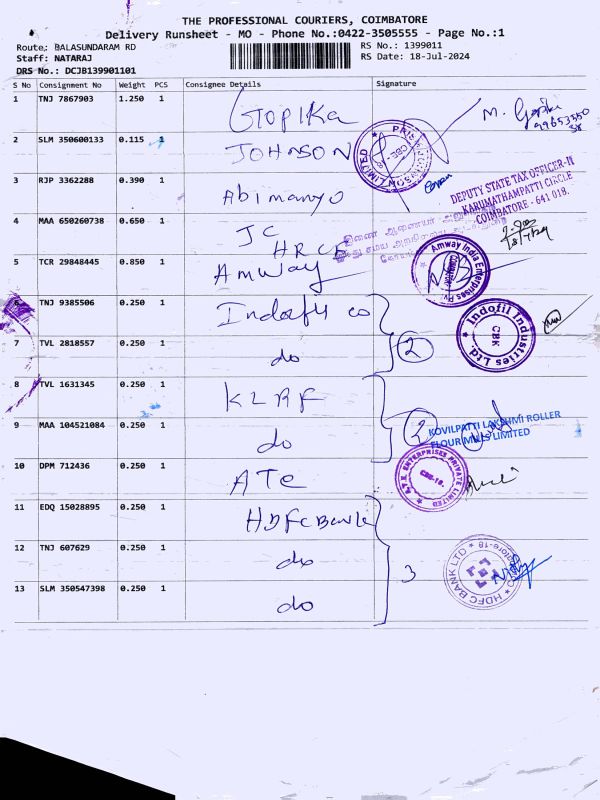 THE PROFESSIONAL COURIERS, COIMBATORE
Delivery Runsheet - MO - Phone No.:0422-3505555 - Page No.:1
Route: BALASUNDARAM RD
Staff: NATARAJ
DRS No.: DCJB139901101
RS No.: 1399011
RS Date: 18-Jul-2024
S No Consignment No Weight PCS Consignee Details Signature
1 TNJ 7867903 1.250 1 Gopika
2 SLM 350600133 0.115 1 JOHNSON
3 RJP 3362288 0.390 1 Abimanyo
DEPUTY STATE TAX OFFICER-II
KARUMATHAMPATTI CIRCLE
COIMBATORE - 641 018.
4 MAA 650260738 0.650 1 JC
HRCE
5 TCR 29848445 0.850 1 Amway
Amway India Enterprises Pvt
6 TNJ 9385506 0.250 1
7 TVL 2818557 0.250 1 do
2
Indofil Industries Ltd.
CBK
8 TVL 1631345 0.250 1 KLRF
9 MAA 104521084 0.250 1 do
2
KOVILPATTI LAKSHMI ROLLER
FLOUR MILLS LIMITED
10 DPM 712436 0.250 1 ATE
A.T.E. ENTERPRISES PRIVATE LIMITED
CBE-18.
11 EDQ 15028895 0.250 1 HDFC Bank
12 TNJ 607629 0.250 1 do
13 SLM 350547398 0.250 1 do
3
HDFC BANK LTD